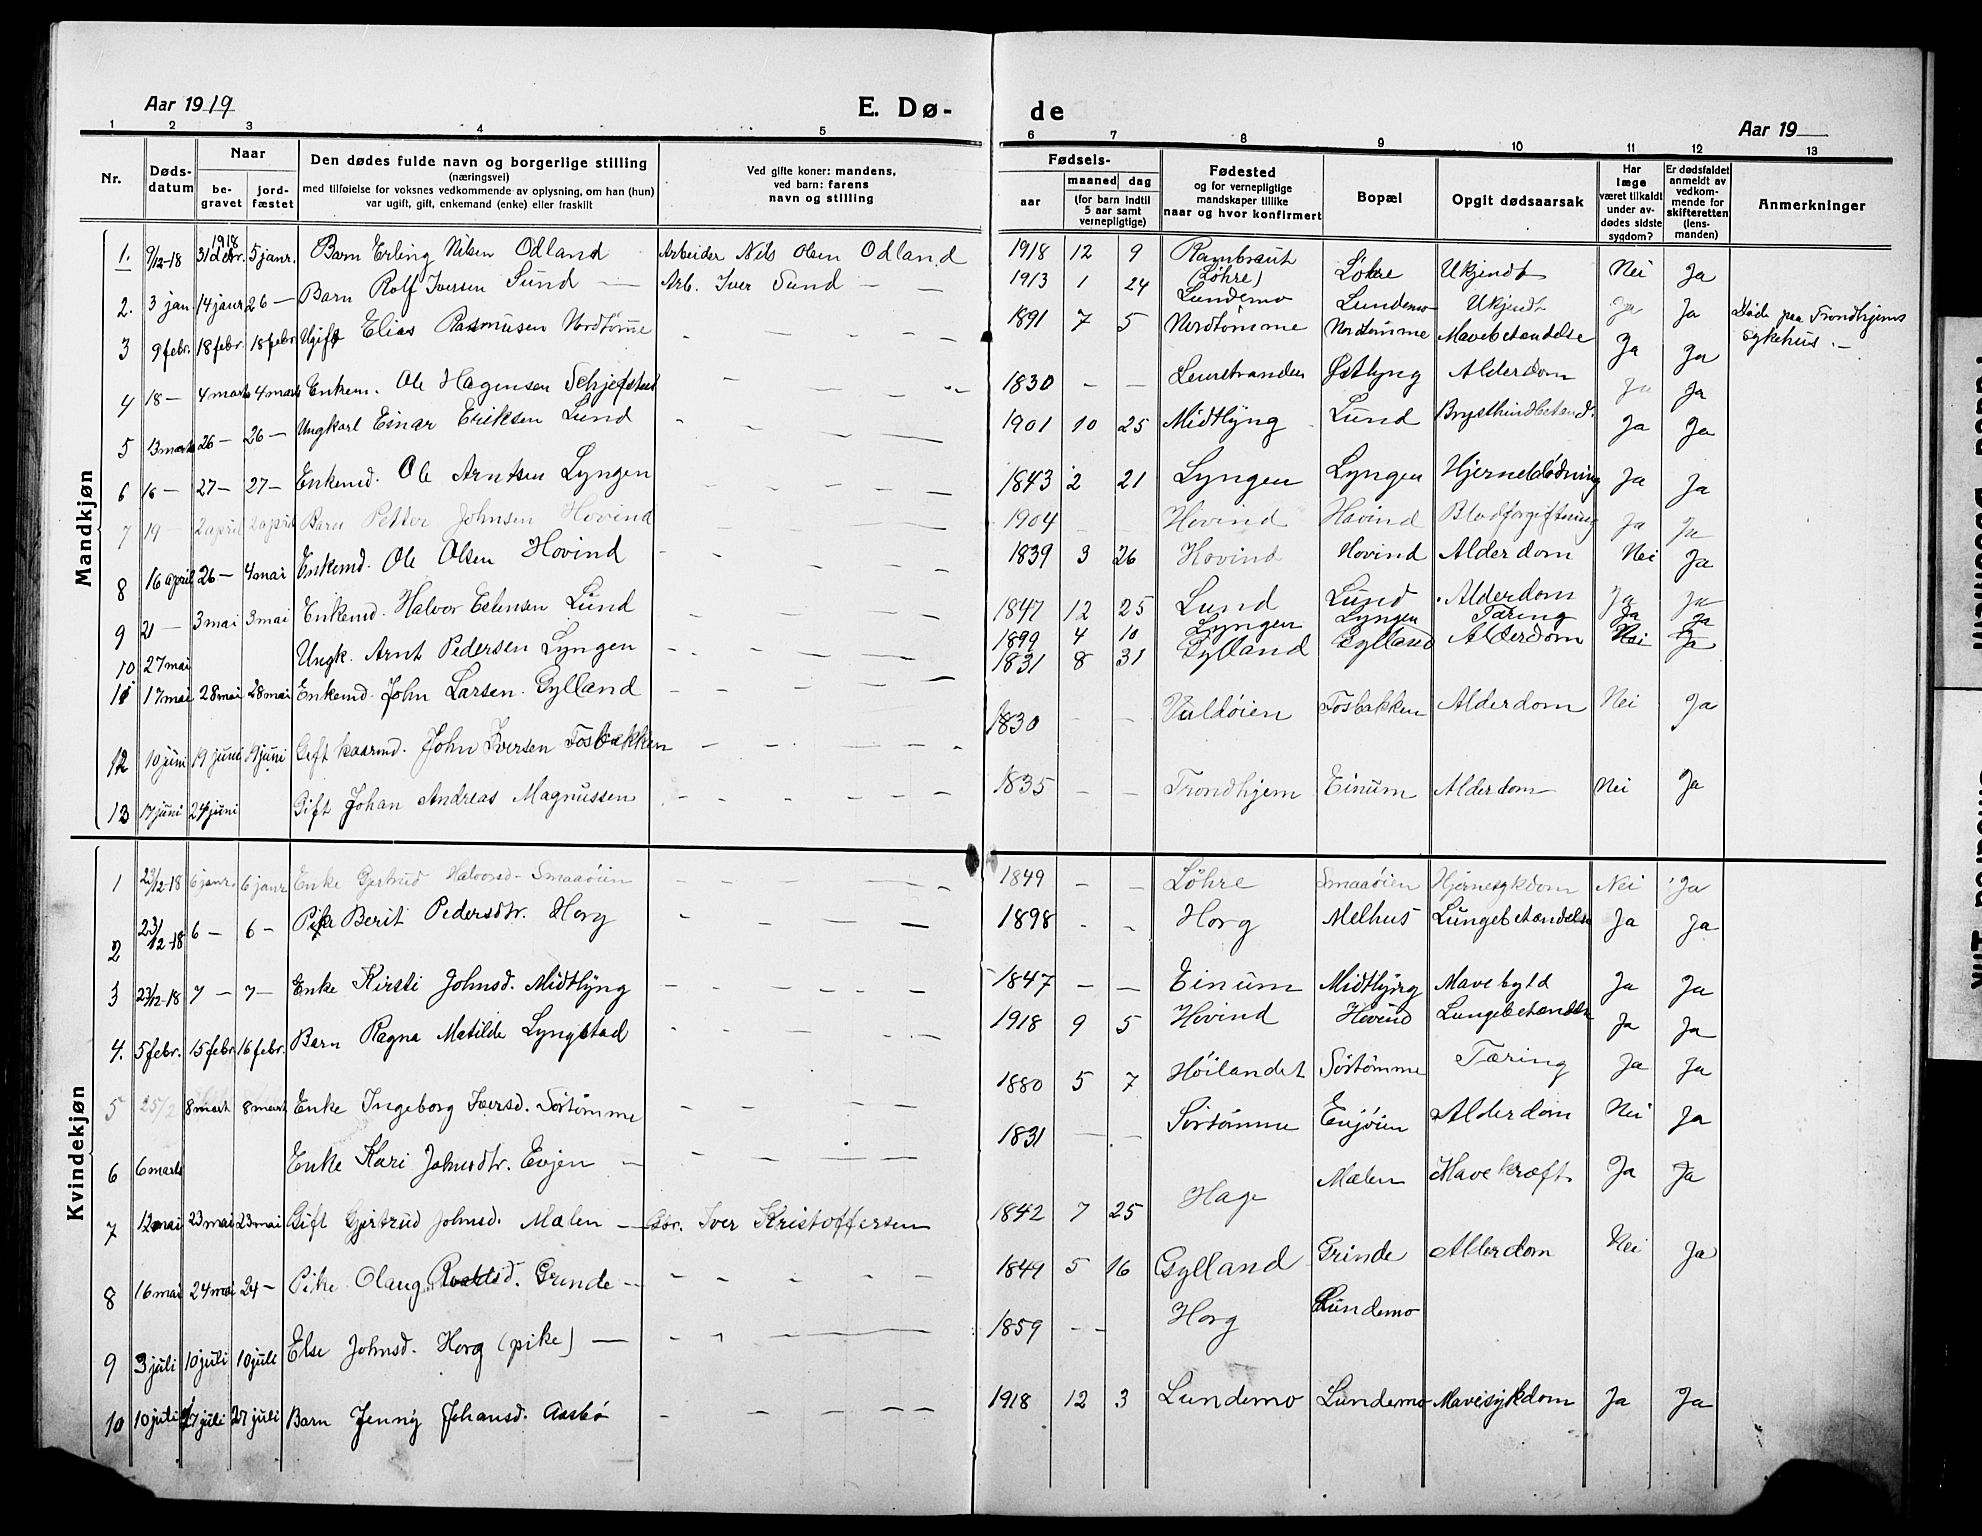 Aar 1919 E. Dø- de Aar 19
1 2 3 4 5 6 7 8 9 10 11 12 13
Nr. Døds-datum Naar be-gravet jord-fæstet Den dødes fulde navn og borgerlige stilling (næringsvei) med tilføielse for voksnes vedkommende av oplysning, om han (hun) var ugift, gift, enkemand (enke) eller fraskilt Ved gifte koner: mandens, ved barn: farens navn og stilling Fødsels- aar maaned dag (for barn indtil 5 aar samt vernepligtige) Fødested og for vernepligtige mandskaper tillike naar og hvor konfirmert Bopæl Opgit dødsaarsak Har læge været tilkaldt under av-dødes sidste sygdom? Er dødsfaldet anmeldt av vedkom-mende for skifteretten (lens-manden) Anmerkninger
Mandkjøn
1. 9/12-18 31 decbr. 1918 5 janr. Barn Erling Nilsen Odland Arbeider Nils Olsen Odland 1918 12 9 Rambraut (Løhre) Løhre Ukjendt Nei Ja
2. 3 jan 14 janr 26 — Barn Rolf Iversen Sund — Arb. Iver Sund — — 1913 1 24 Lundemo Lundemo Ukjendt Ja Ja
3 9 febr. 18 febr. 18 febr Ugift Elias Rasmusen Nordtømme — — — 1891 7 5 Nordtømme Nordtømme Mavebetændelse Ja Ja Døde paa Trondhjems sykehus. —
4 18 — 4 marts 4 marts Enkem. Ole Hagensen — — 1830 — — Leinstranden Østlyng Alderdom Ja Ja
5 13 marts 26 — 26 — Ungkarl Einar Eriksen Lund — — — 1901 10 25 Midtlyng Lund Brysthindebetænd. Ja Ja
6 16 — 27 — 27 — Enkemd. Ole Arntsen Lyngen — — — 1843 2 21 Lyngen Lyngen Hjerneblødning Ja Ja
7 19 — 2 april 2 april Barn Petter Johnsen Hovind — — — 1904 — — Hovind Hovind Blodforgiftning Ja Ja
8 16 april 26 — 4 mai Enkemd. Ole Olsen Hovind — — — 1839 3 26 Hovind Hovind Alderdom Nei Ja
9 21 — 3 mai 3 mai Enkemd. Halvor Estensen Lund — — — 1847 12 25 Lund Lund Alderdom Ja Ja
10 27 mai Ungk. Arnt Pedersen Lyngen — — — 1899 4 10 Lyngen Lyngen Tæring Ja Ja
11 17 mai 28 mai 28 mai Enkemd. John Larsen Gylland — — — 1831 8 31 Gylland Gylland Alderdom Nei Ja
12 10 juni 19 juni 19 juni Gift kaarmd. John Iversen Fosbakken — — — 1830 — — Valdøien Fosbakken Alderdom Nei Ja
13 17 juni 24 juni Gift Johan Andreas Magnussen — — — 1835 — — Trondhjem Einum Alderdom Nei Ja
Kvindekjøn
1 23/12-18 6 janr. 6 janr Enke Gjertrud Halvorsd. Smaaøien — — — 1849 — — Løhre Smaaøien Hjernesykdom Nei Ja
2 23/12-18 6 — 6 — Pike Berit Pedersdtr. Horg — — — 1898 - - Horg Melhus Lungebetændelse Ja Ja
3 23/12-18 7 — 7 — Enke Kirsti Johnsd. Midtlyng — — — 1847 — — Einum Midtlyng Mavebyld Ja Ja
4. 5 febr. 15 febr 16 febr. Barn Ragna Matilde Lyngstad — — — 1918 9 5 Hovind Hovind Lungebetændelse Ja Ja
5 25/2 8 mart 8 mart Enke Ingeborg Iversd. Sørtømme — — — 1880 5 7 Høilandet Sørtømme Tæring Ja Ja
6 6 marts Enke Kari Johnsdtr. Evjen — — — 1831 — — Sørtømme Evjøien Alderdom Nei Ja
7 12 mai 23 mai 23 mai Gift Gjertrud Johnsd. Mælen — Gbr. Iver Kristoffersen 1842 7 25 Hage Mælen Mavekræft Ja Ja
8 16 mai 24 mai 24 — Pike Olaug Grinde — — — 1849 5 16 Gylland Grinde Alderdom Nei Ja
9 3 juli 10 juli 10 juli Else Johnsd. Horg (pike) — — — 1859 — — Horg Lundemo
10 10 juli 27 juli 27 juli Barn Jenny Johansd. Aasbø — — — 1918 12 3 Lundemo Lundemo Mavesykdom Ja Ja